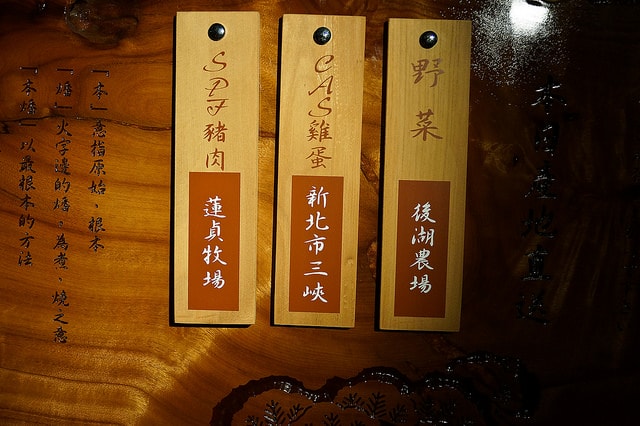 本店產地直送
野菜
後湖農場
CAS雞蛋
新北市三峽
SPF豬肉
蓮貞牧場
「本」意指原始、根本
「燔」火字邊的燔，為煮、燒之意
「本燔」以最根本的方法